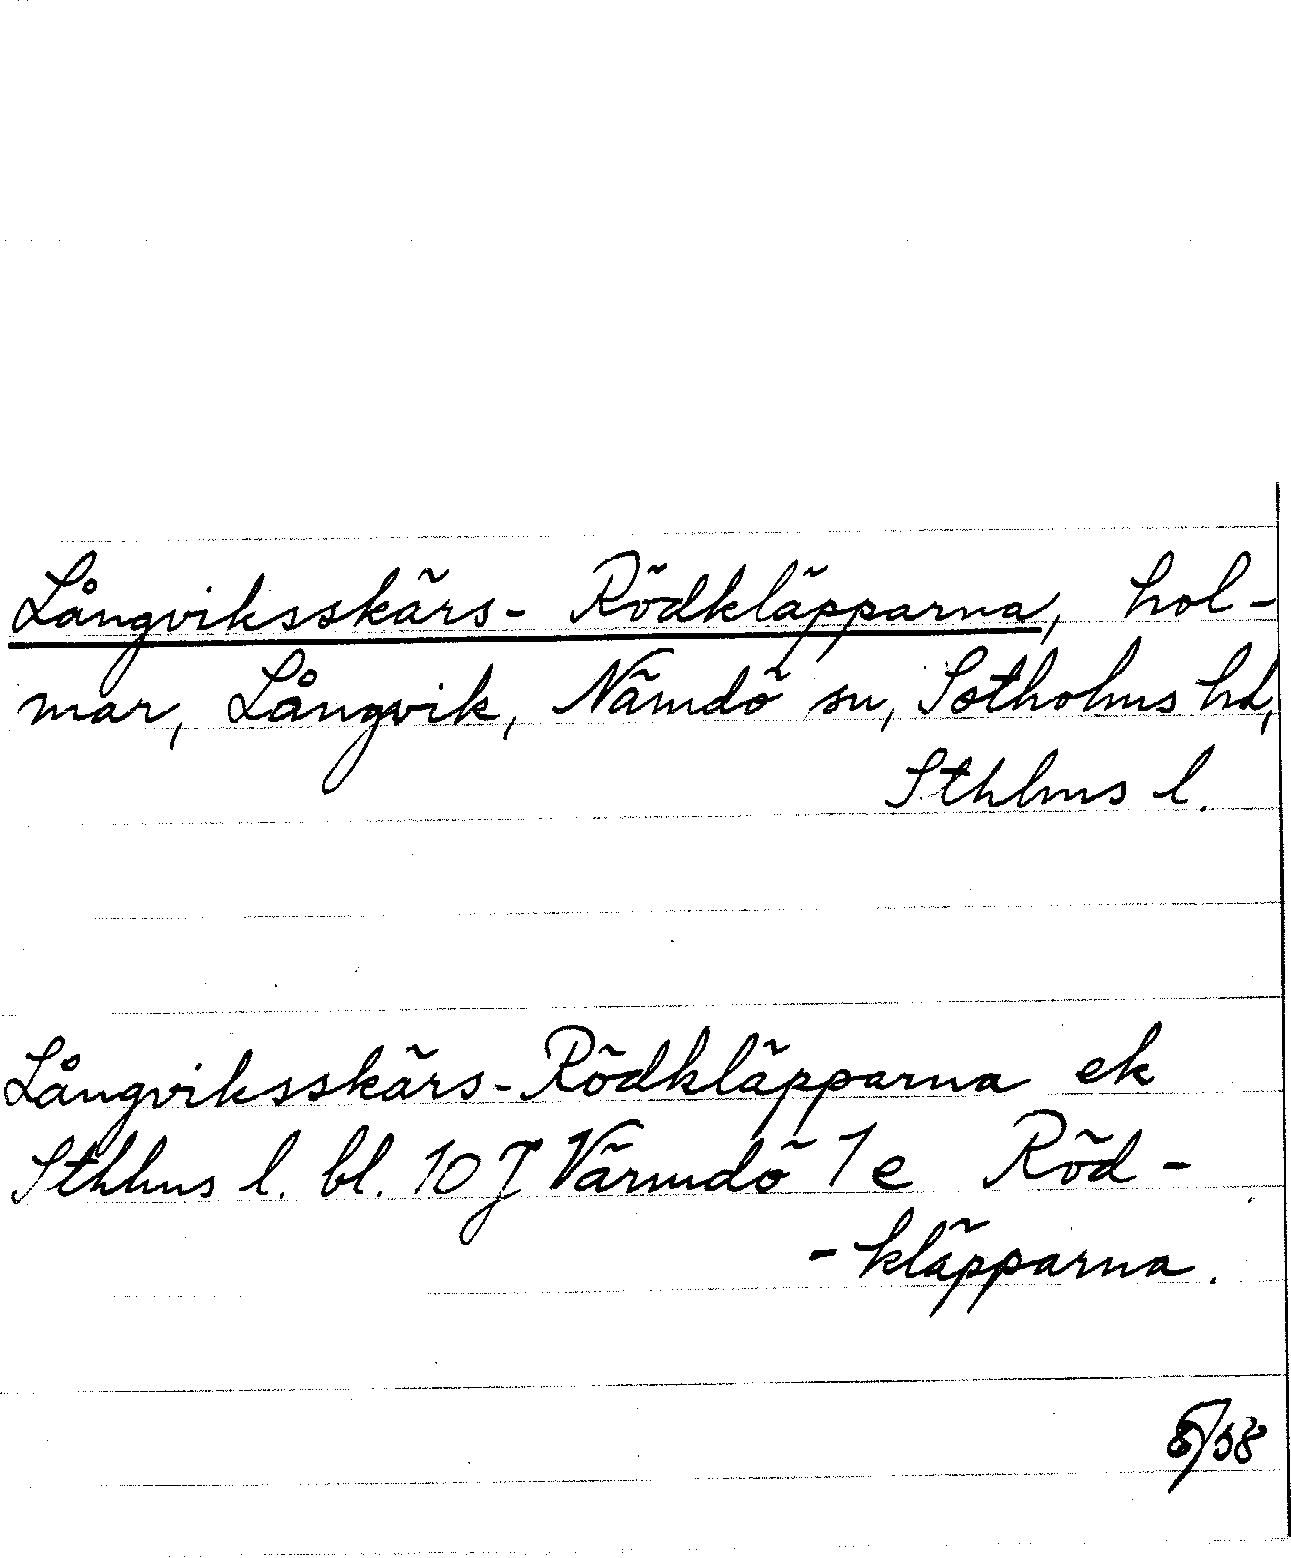 Långviksskärs- Rödkläpparna, hol-
mar, Långvik, Nämdö sn, Sotholms hd,
Sthlms l.
Långviksskärs-Rödkläpparna ek
Sthlms l. bl. 10 J Värmdö 1 e Röd-
-kläpparna.